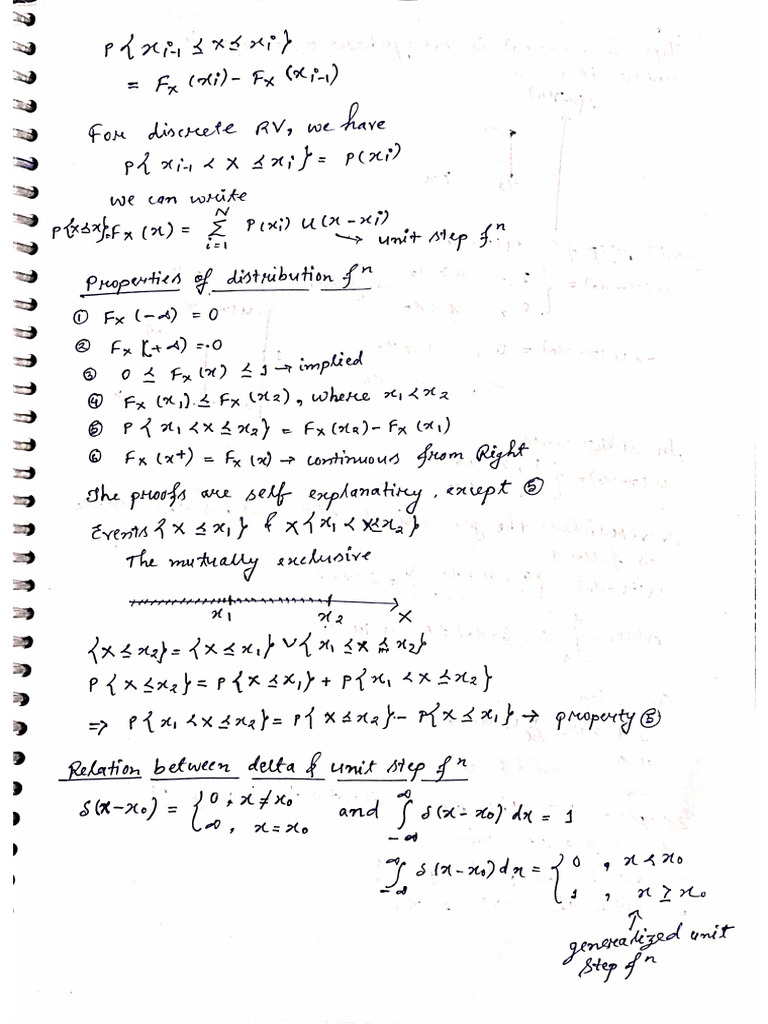 P{x_{i-1} ≤ X ≤ x_i}
= F_X (x_i) - F_X (x_{i-1})
For discrete RV, we have
P{ x_{i-1} < X ≤ x_i } = P(x_i)
we can write
P{X≤x}=F_X (x) = ∑_{i=1}^{N} P(x_i) u(x - x_i) → unit step f^n
Properties of distribution f^n
① F_X (-∞) = 0
② F_X [+∞) = 0
③ 0 ≤ F_X (x) ≤ 1 → implied
④ F_X (x_1) ≤ F_X (x_2), where x_1 < x_2
⑤ P{ x_1 < X ≤ x_2 } = F_X (x_2) - F_X (x_1)
⑥ F_X (x+) = F_X (x) → continuous from Right
The proofs are self explanatiry, except ⑤
Events { X ≤ x_1 } & X{ x_1 < X ≤ x_2 }
The mutually exclusive
x_1 x_2 X
{X ≤ x_2} = {X ≤ x_1} ∪ { x_1 ≤ X ≤ x_2}
P{ X ≤ x_2} = P{ X ≤ x_1} + P{ x_1 < X ≤ x_2 }
⇒ P{ x_1 < X ≤ x_2} = P{ X ≤ x_2} - P{X ≤ x_1} → property ⑤
Relation between delta & unit step f^n
δ(x-x_0) = { 0 ; x ≠ x_0 and ∫_{-∞}^{∞} δ(x - x_0) dx = 1
∞, x = x_0
∫_{-∞}^{∞} δ(x-x_0) dx = { 0 , x < x_0
1 , x ≥ x_0
↑
generealized unit
step f^n